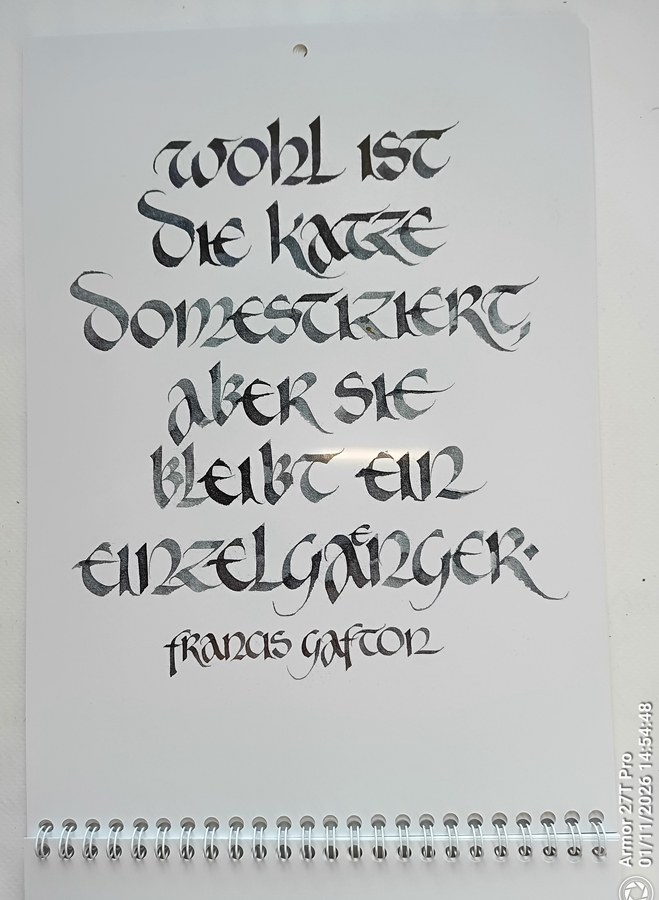 Wohl ist
die Katze
domestiziert,
aber sie
bleibt ein
Einzelgänger.
Francis Gafton
Armor 27T Pro
01/11/2026 14:54:48